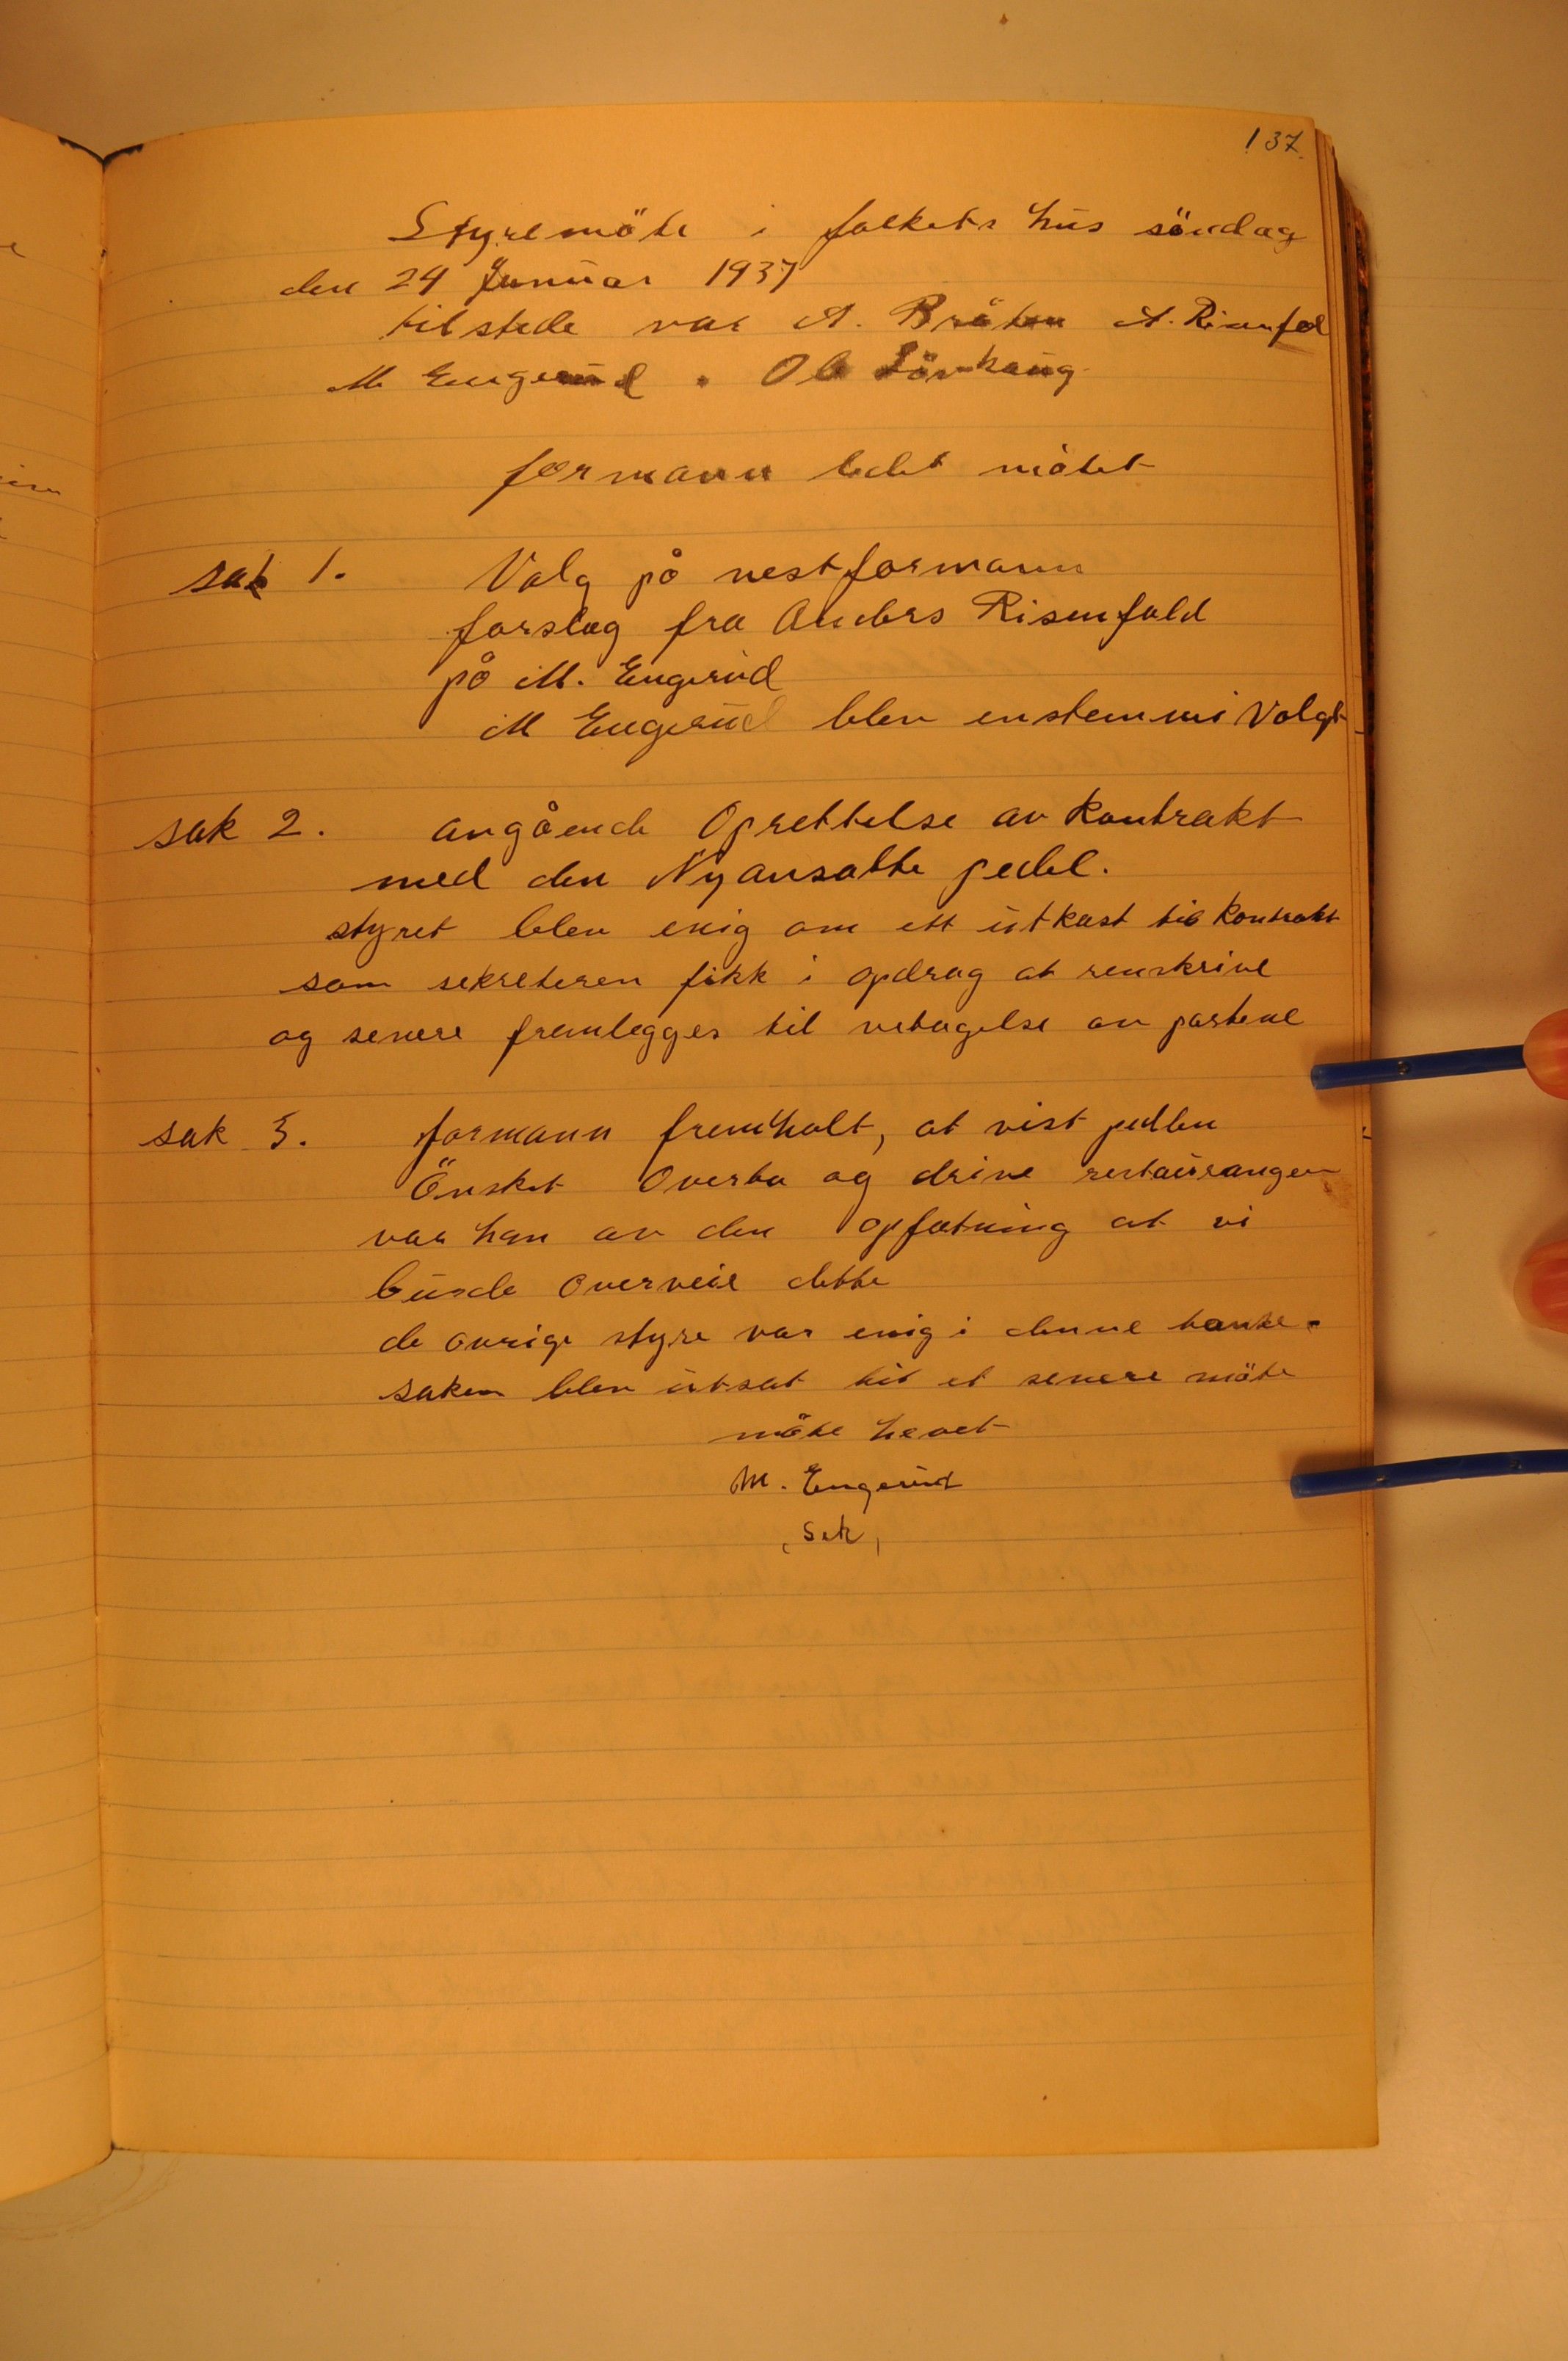 137.
Styremöte i folkets hus söndag
den 24 Januar 1937
tilstede var A. Bråten A. Risenfol
M Engerud . Ole Lövhaug
formann ledet mötet
sak 1. Valg på nestformann
forslag fra Anders Risenfald
på M. Engerud
M Engerud blev enstemmi Valgt
sak 2. angående Oprettelse av Kontrakt
med den Nyansatte pedel.
styret blev enig om ett utkast til Kontrakt
som sekreteren fikk i opdrag at renskrive
og senere fremlegges til vetagelse av partene
sak 3. formann fremholt, at vist pedlen
Önsket Overta og drive restaurangen
var han av den opfatning at vi
burde Overveie dette
de övrige styre var enig i denne tanke.
saken blev utsat til et senere möte
möte hevet
M. Engerud
sek